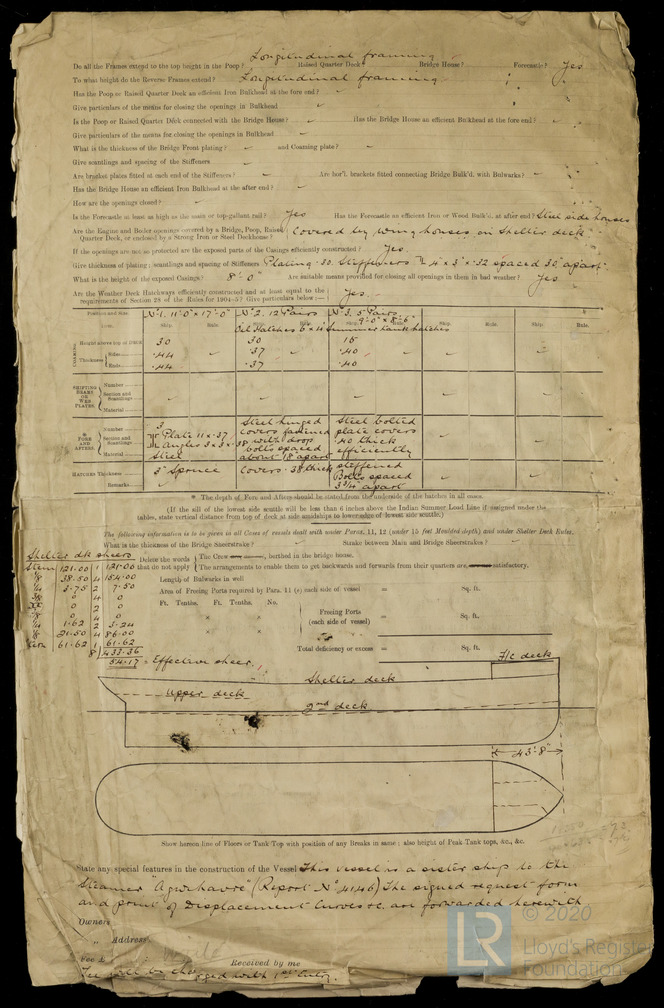 Longitudinal framing
Do all the Frames extend to the top height in the Poop? Raised Quarter Deck? Bridge House? Forecastle? Yes
To what height do the Reverse Frames extend? Longitudinal framing
Has the Poop or Raised Quarter Deck an efficient Iron Bulkhead at the fore end?
Give particulars of the means for closing the openings in Bulkhead
Is the Poop or Raised Quarter Deck connected with the Bridge House? Has the Bridge House an efficient Bulkhead at the fore end?
Give particulars of the means for closing the openings in Bulkhead
What is the thickness of the Bridge Front plating? and Coaming plate?
Give scantlings and spacing of the Stiffeners
Are bracket plates fitted at each end of the Stiffeners? Are hor'l. brackets fitted connecting Bridge Bulk'd. with Bulwarks?
Has the Bridge House an efficient Iron Bulkhead at the after end?
How are the openings closed?
Is the Forecastle at least as high as the main or top-gallant rail? Yes Has the Forecastle an efficient Iron or Wood Bulk'd. at after end? Steel side houses
Are the Engine and Boiler openings covered by a Bridge, Poop, Raised Quarter Deck, or enclosed by a Strong Iron or Steel Deckhouse? Covered by wing houses on Shelter deck
If the openings are not so protected are the exposed parts of the Casings efficiently constructed? Yes
Give thickness of plating; scantlings and spacing of Stiffeners Plating .30. Stiffeners 4" x 3" x .32 spaced 30" apart
What is the height of the exposed Casings? 8'-0" Are suitable means provided for closing all openings in them in bad weather? Yes
Are the Weather Deck Hatchways efficiently constructed and at least equal to the
requirements of Section 28 of the Rules for 1904-5? Give particulars below:— Yes.
Position and Size No 1. 11'-0" x 17'-0" No 2. 12 Pairs No 3. 5 Pairs
Oil Hatches 6 x 4 9'-0" x 8'-6" Summer tank hatches
Item. Ship. Rule. Ship. Rule. Ship. Rule. Ship. Rule.
COAMING Height above top of DECK 30 30 15
Thickness Sides .44 .37 .40
Ends .44 .37 .40
SHIFTING BEAMS OR WEB PLATES Number
Section and Scantlings
Material
* FORE AND AFTERS Number 3 Steel hinged Steel bolted
Section and Scantlings Plate 11 x .37 covers fastened plate covers
Angles 3 x 3 x .38 with drop .40 thick
Material Steel bolts spaced about 18" apart efficiently
HATCHES Thickness 3" Spruce Covers .38 thick stiffened
Remarks Bolts spaced
3 3/4" apart
* The depth of Fore and Afters should be stated from the underside of the hatches in all cases.
(If the sill of the lowest side scuttle will be less than 6 inches above the Indian Summer Load Line if assigned under the
tables, state vertical distance from top of deck at side amidships to lower edge of lowest side scuttle.)
The following information is to be given in all Cases of vessels dealt with under Paras. 11, 12 (under 15 feet Moulded depth) and under Shelter Deck Rules.
What is the thickness of the Bridge Sheerstrake? Strake between Main and Bridge Sheerstrakes?
Shelter dk sheers
Delete the words that do not apply
The Crew berthed in the bridge house.
The arrangements to enable them to get backwards and forwards from their quarters are satisfactory.
Stem 121.00 1 121.00
1/8 38.50 4 154.00
1/4 3.75 2 7.50
3/8 0 4 0
0 2 0
0 4 0
1/4 1.62 2 3.24
1/8 21.50 4 86.00
Stern 61.62 1 61.62
8 433.36
54.17 = Effective sheer.
Length of Bulwarks in well
Area of Freeing Ports required by Para. 11 (e) each side of vessel = Sq. ft.
Ft. Tenths. Ft. Tenths. No.
Freeing Ports
(each side of vessel) = Sq. ft.
Total deficiency or excess = Sq. ft.
F/c deck
Shelter deck
Upper deck
2nd deck
43'-8"
Show hereon line of Floors or Tank Top with position of any Breaks in same; also height of Peak Tank tops, &c., &c.
State any special features in the construction of the Vessel This vessel is a sister ship to the
Steamer "Agwihavre" (Report No 4146) The signed request form
and print of Displacement Curves &c. are forwarded herewith
Owners
" Address
Fee £ Received by me
Fee will be charged with 1st Entry.
LR
© 2020
Lloyd's Register
Foundation